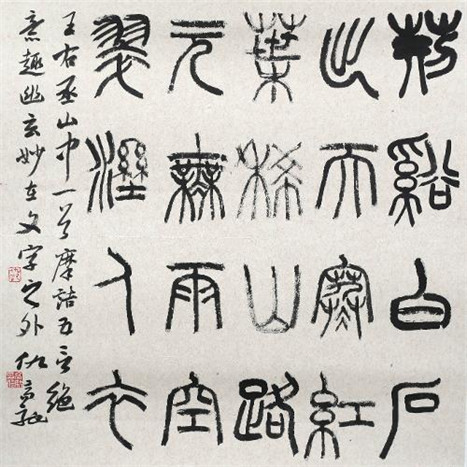 荆谿白石
出天寒紅
葉稀山路
元無雨空
翠溼人衣
王右丞山中一首摩詰五言絶
意趣幽玄妙在文字之外仇高馳